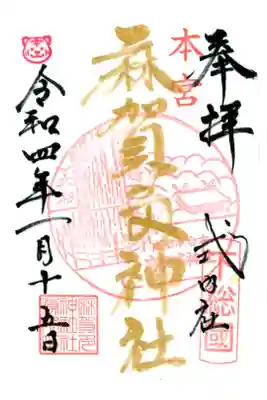 奉拝
式内社
下総國
本宮
麻賀多神社
令和四年一月十五日